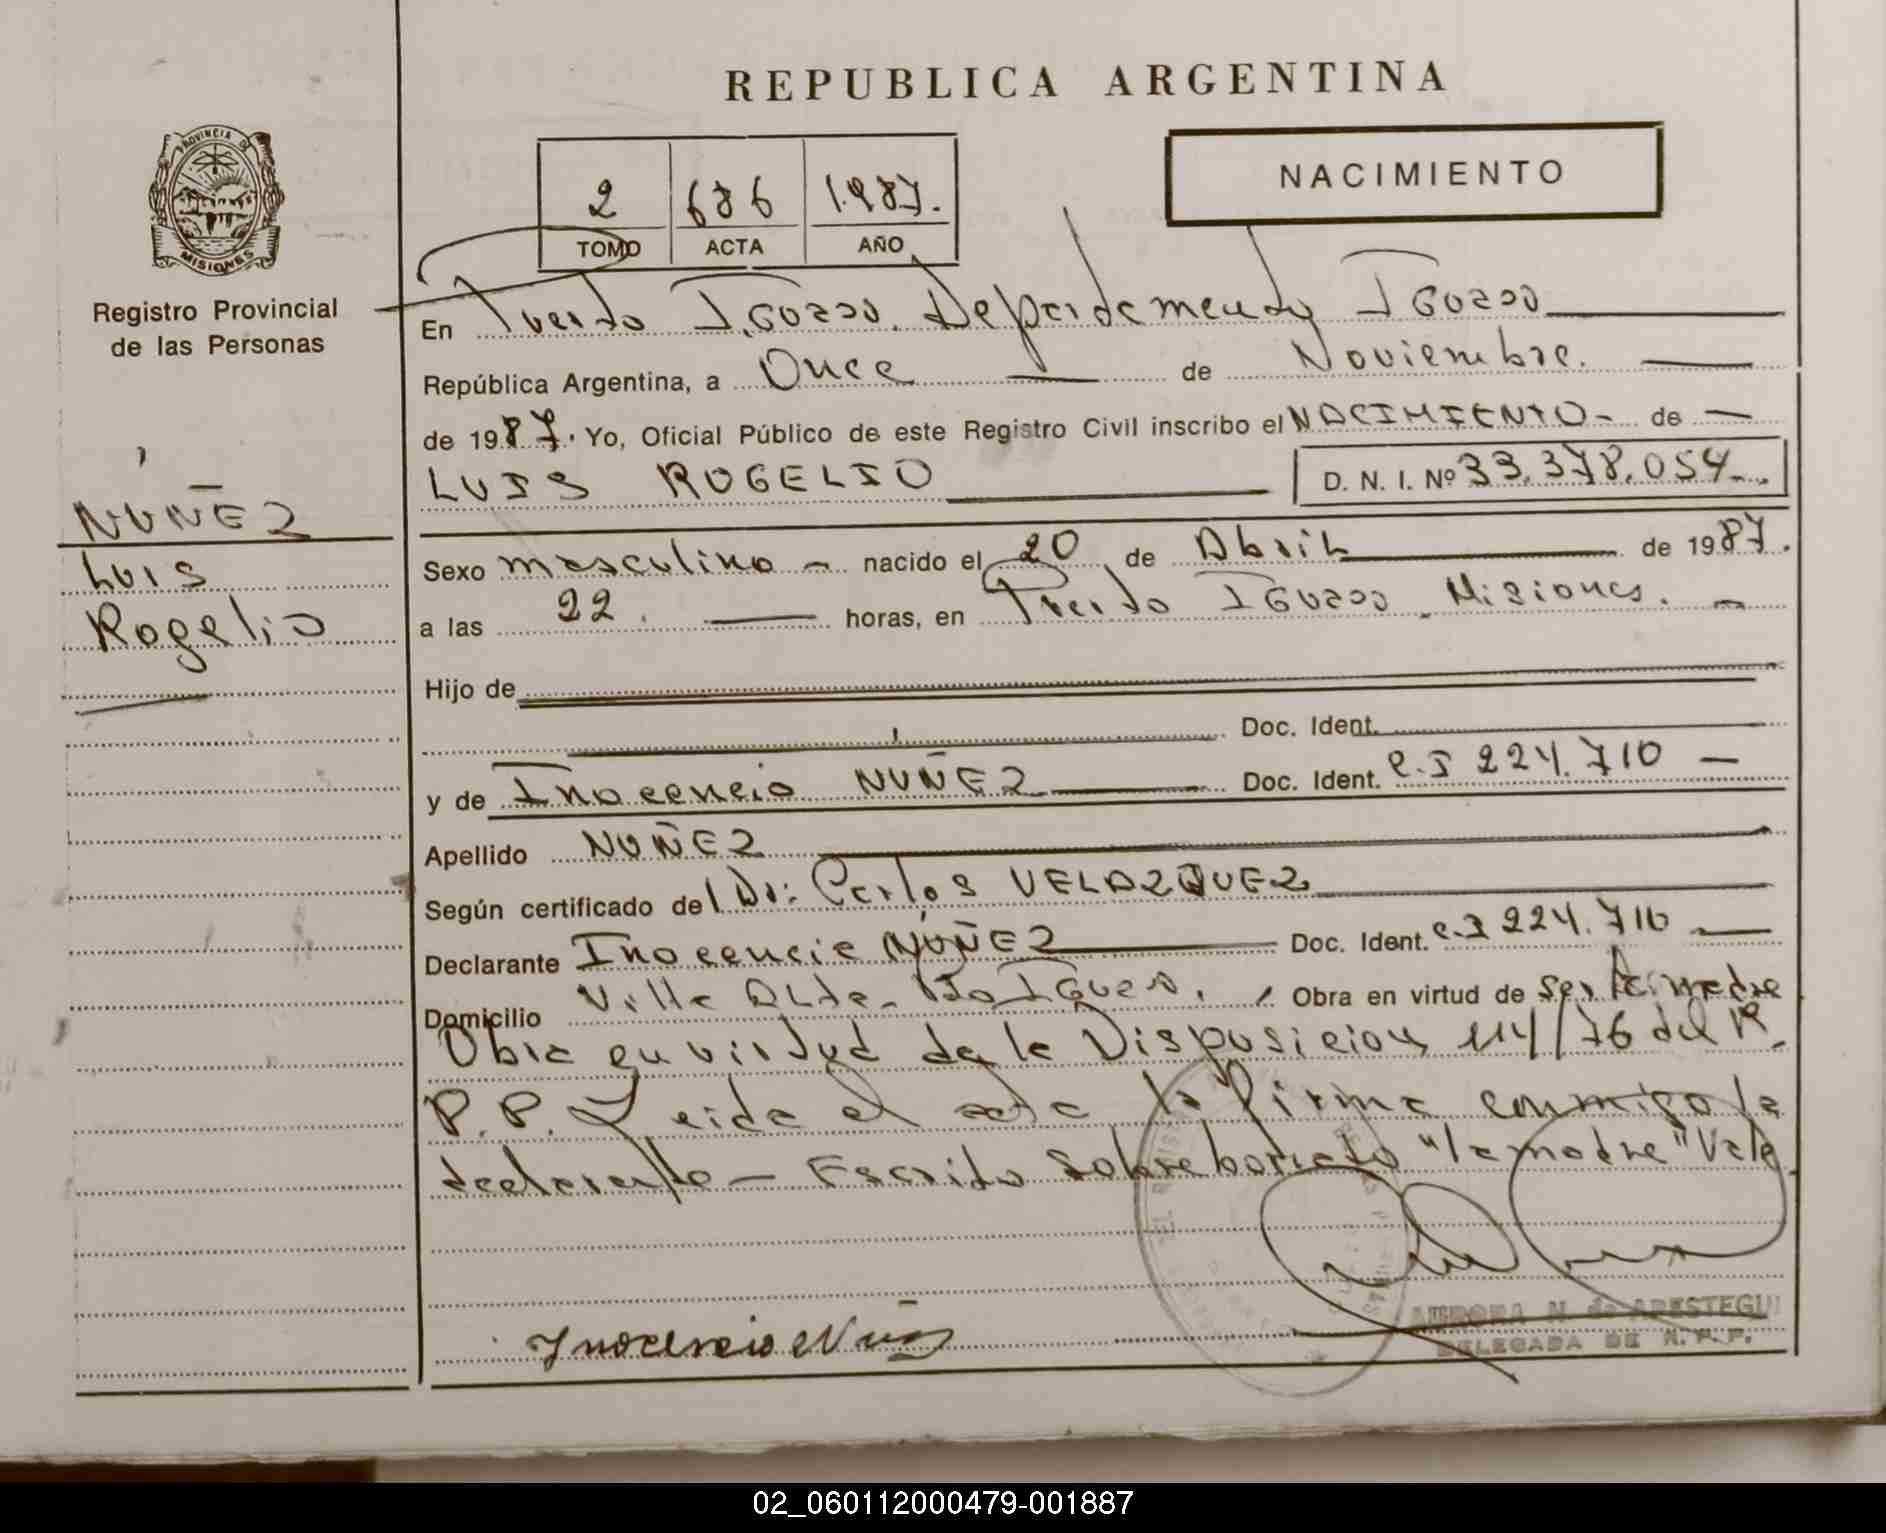 REPUBLICA ARGENTINA
PROVINCIA DE
MISIONES
Registro Provincial
de las Personas
2 686 1.987.
TOMO ACTA AÑO
NACIMIENTO
En Puerto Iguazú. Departamento Iguazú
República Argentina, a Once de Noviembre.
de 1987. Yo, Oficial Público de este Registro Civil inscribo el NACIMIENTO- de
LUIS ROGELIO D. N. I. Nº 33.378.054
NUÑEZ
Luis
Rogelio
Sexo masculino - nacido el 20 de Abril de 1987.
a las 22. horas, en Puerto Iguazú. Misiones. -
Hijo de
Doc. Ident.
y de Inocencia NUÑEZ Doc. Ident. C.I 224.710 -
Apellido NUÑEZ
Según certificado del Dr: Carlos VELAZQUEZ
Declarante Inocencia NUÑEZ Doc. Ident. C.I 224.710
Domicilio Villa Alta- Pto Iguazú. Obra en virtud de ser la madre
Obra en virtud de la Disposicion 114/76 del R.
P.P. Leida el acta la firma conmigo la
declarante - Escrito sobreborrado "la madre" Vale.
Inocencia Nuñez
AURORA N. de ARESTEGUI
DELEGADA DE R.P.P.
02_060112000479-001887